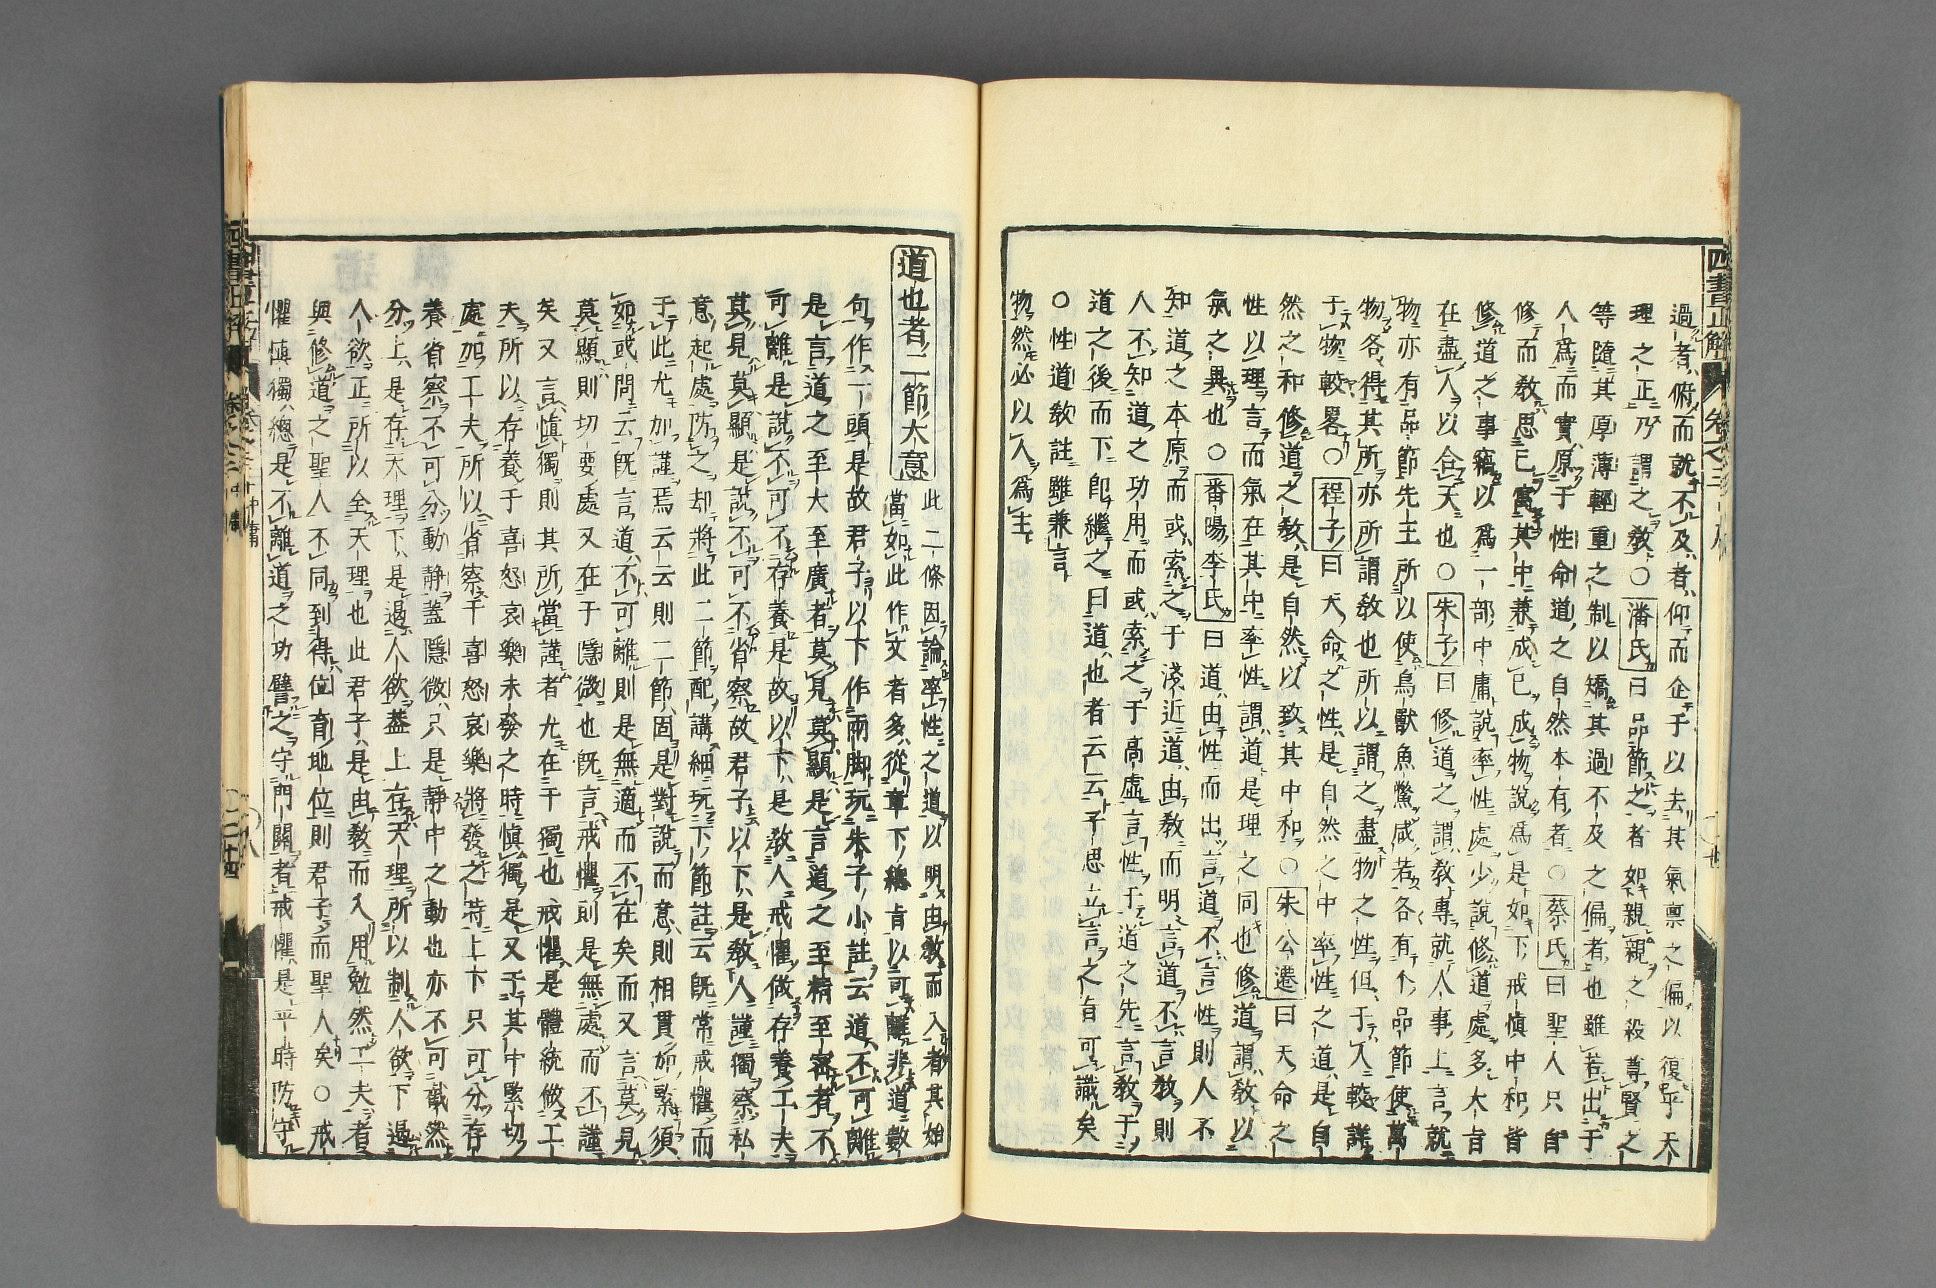 四書正解 卷之三
過者俯而就不及者仰而企于以去其氣禀之偏以復乎天
理之正乃謂之教○潘氏曰品節之者如親親之殺尊賢之
等隨其厚薄輕重之制以矯其過不及之偏者也雖若出于
人為而實原于性命道之自然本有者○蔡氏曰聖人只自
修而教思已寓其中兼成已成物說為是如下戒慎中和皆
修道之事竊以為一部中庸說率性處少說修道處多大肯
在盡人以合天也○朱子曰修道之謂教專就人事上言就
物亦有品節先王所以使鳥獸魚鱉咸若各有个品節使萬
物各得其所亦所謂教也所以謂之盡物之性但于人較詳
于物較畧○程子曰天命之性是自然之中率性之道是自
然之和修道之教是自然以致其中和○朱公遷曰天命之
性以理言而氣在其中率性謂道是理之同也修道謂教以
氣之異也○番陽李氏曰道由性而出言道不言性則人不
知道之本原而或索之于淺近道由教而明言道不言教則
人不知道之功用而或索之于高虛言性于道之先言教于
道之後而下即繼之曰道也者云云子思立言之肯可識矣
○性道教註雖兼言
物然必以人為主
道也者二節大意
此二條因論率性之道以明由教而入者其始
當如此作文者多從章下總肯以可離非道數
句作一頭是故君子以下作兩脚玩朱子小註云道不可離
是言道之至大至廣者莫見莫顯是言道之至精至密者不
可離是說不可不存養是故以下是教人戒懼做存養工夫
莫見莫顯是說不可不省察故君子以下是教人謹獨察私
意起處防之却將此二節配講細玩下節註云既常戒懼而
于此尤加謹焉云云則二節固是對說而意則相貫如緊須
如或問云既言道不可離則是無適而不在矣而又言莫見
莫顯則切要處又在于隱微也既言戒懼則是無處而不謹
矣又言慎獨則其所當謹者尤在于獨也戒懼是體統做工
夫所以存養于喜怒哀樂未發之時慎獨是又于其中緊切
處加工夫所以省察于喜怒哀樂將發之時上下只可分存
養省察不可分動靜蓋隱微只是靜中之動也亦不可截然
分上是存天理下是遏人欲蓋上存天理所以制人欲下遏
人欲正所以全天理也此君子是由教而入用勉然工夫者
與修道之聖人不同到得位育地位則君子而聖人矣○戒
懼慎獨總是不離道之功譬之守門關者戒懼是平時防守